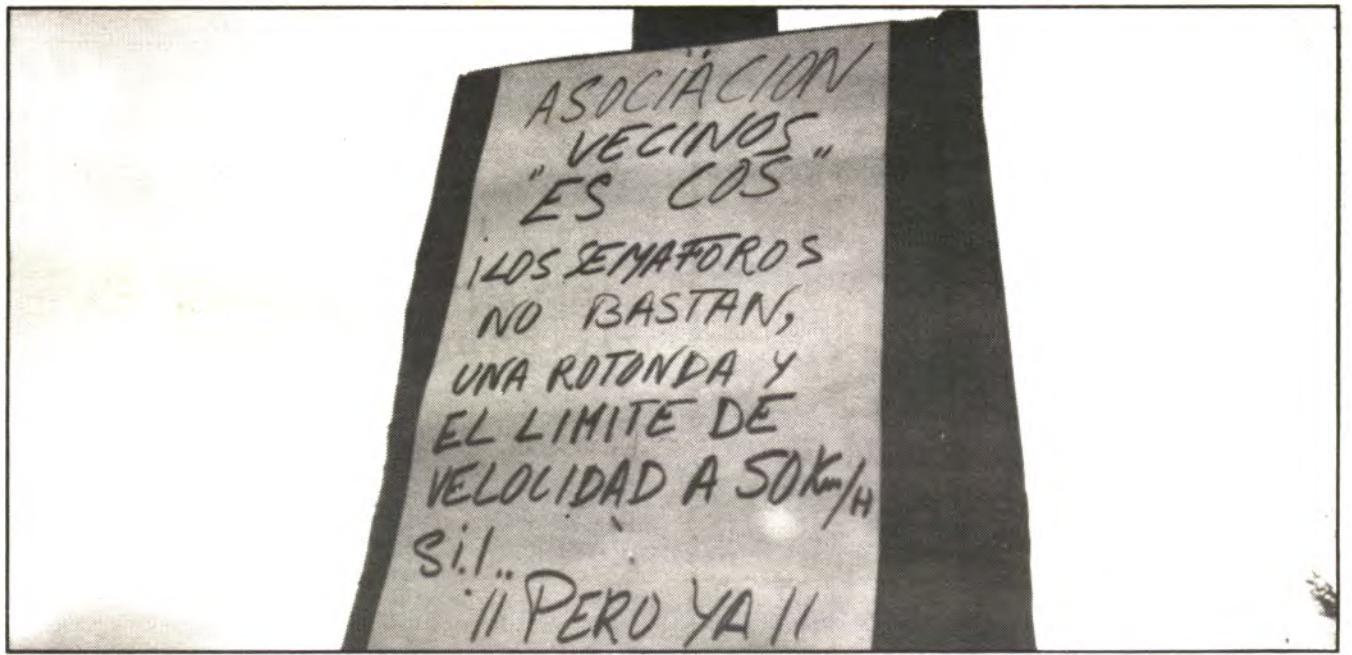 ASOCIACION
VECINOS
"ES COS"
¡LOS SEMAFOROS
NO BASTAN,
UNA ROTONDA Y
EL LIMITE DE
VELOCIDAD A 50 Km/H
Si!..
¡¡PERO YA!!